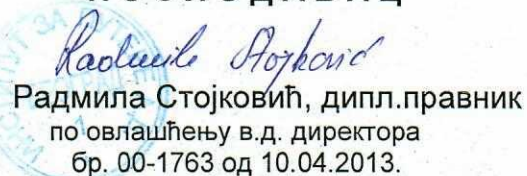 Radmila Stojković
Радмила Стојковић, дипл.правник
по овлашћењу в.д. директора
бр. 00-1763 од 10.04.2013.